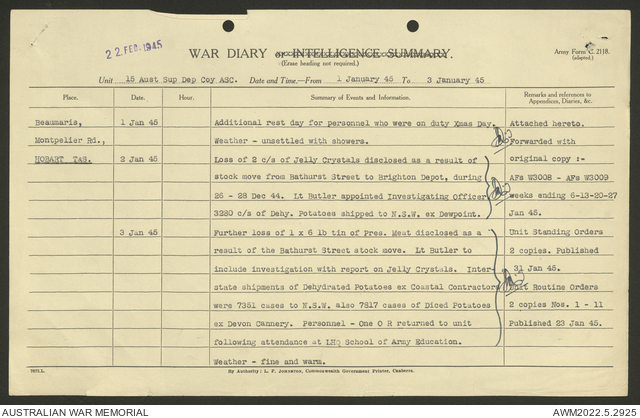 22 FEB 1945
WAR DIARY or INTELLIGENCE SUMMARY.
(Erase heading not required.)
Army Form C. 2118.
(adapted.)
Unit 15 Aust Sup Dep Coy ASC. Date and Time.—From 1 January 45 To 3 January 45
Place. Date. Hour. Summary of Events and Information. Remarks and references to
Appendices, Diaries, &c.
Beaumaris, 1 Jan 45 Additional rest day for personnel who were on duty Xmas Day. Attached hereto.
Montpelier Rd., Weather - unsettled with showers. Forwarded with
HOBART TAS. 2 Jan 45 Loss of 2 c/s of Jelly Crystals disclosed as a result of original copy :-
stock move from Bathurst Street to Brighton Depot, during AFs W3008 - AFs W3009
26 - 28 Dec 44. Lt Butler appointed Investigating Officer weeks ending 6-13-20-27
3280 c/s of Dehy. Potatoes shipped to N.S.W. ex Dewpoint. Jan 45.
3 Jan 45 Further loss of 1 x 6 lb tin of Pres. Meat disclosed as a Unit Standing Orders
result of the Bathurst Street stock move. Lt Butler to 2 copies. Published
include investigation with report on Jelly Crystals. Inter- 31 Jan 45.
state shipments of Dehydrated Potatoes ex Coastal Contractors Unit Routine Orders
were 7351 cases to N.S.W. also 7817 cases of Diced Potatoes 2 copies Nos. 1 - 11
ex Devon Cannery. Personnel - One O R returned to unit Published 23 Jan 45.
following attendance at LHQ School of Army Education.
Weather - fine and warm.
By Authority: L. F. Johnston, Commonwealth Government Printer, Canberra.
AUSTRALIAN WAR MEMORIAL AWM2022.5.2925